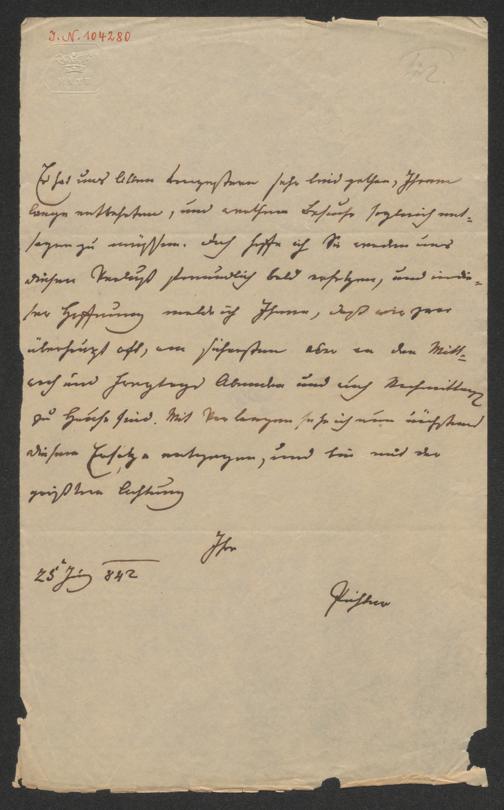 I. N. 104280
Es hat uns allen vorgestern sehr leid gethan, Ihrem
lange entbehrten, und werthem Besuche sogleich ent-
sagen zu müssen. Doch hoffe ich Sie werden uns
diesen Verlust freundlich bald ersetzen, und in die-
ser Hoffnung melde ich Ihnen, daß wir zwar
überhaupt oft, am sichersten aber an den Mitt-
woch und Sonntags Abenden und auch Nachmittags
zu Hause sind. Mit Verlangen sehe ich nun nächstens
diesem Ersatze entgegen, und bin mit der
größten Achtung
Ihr
25 842
Pichler